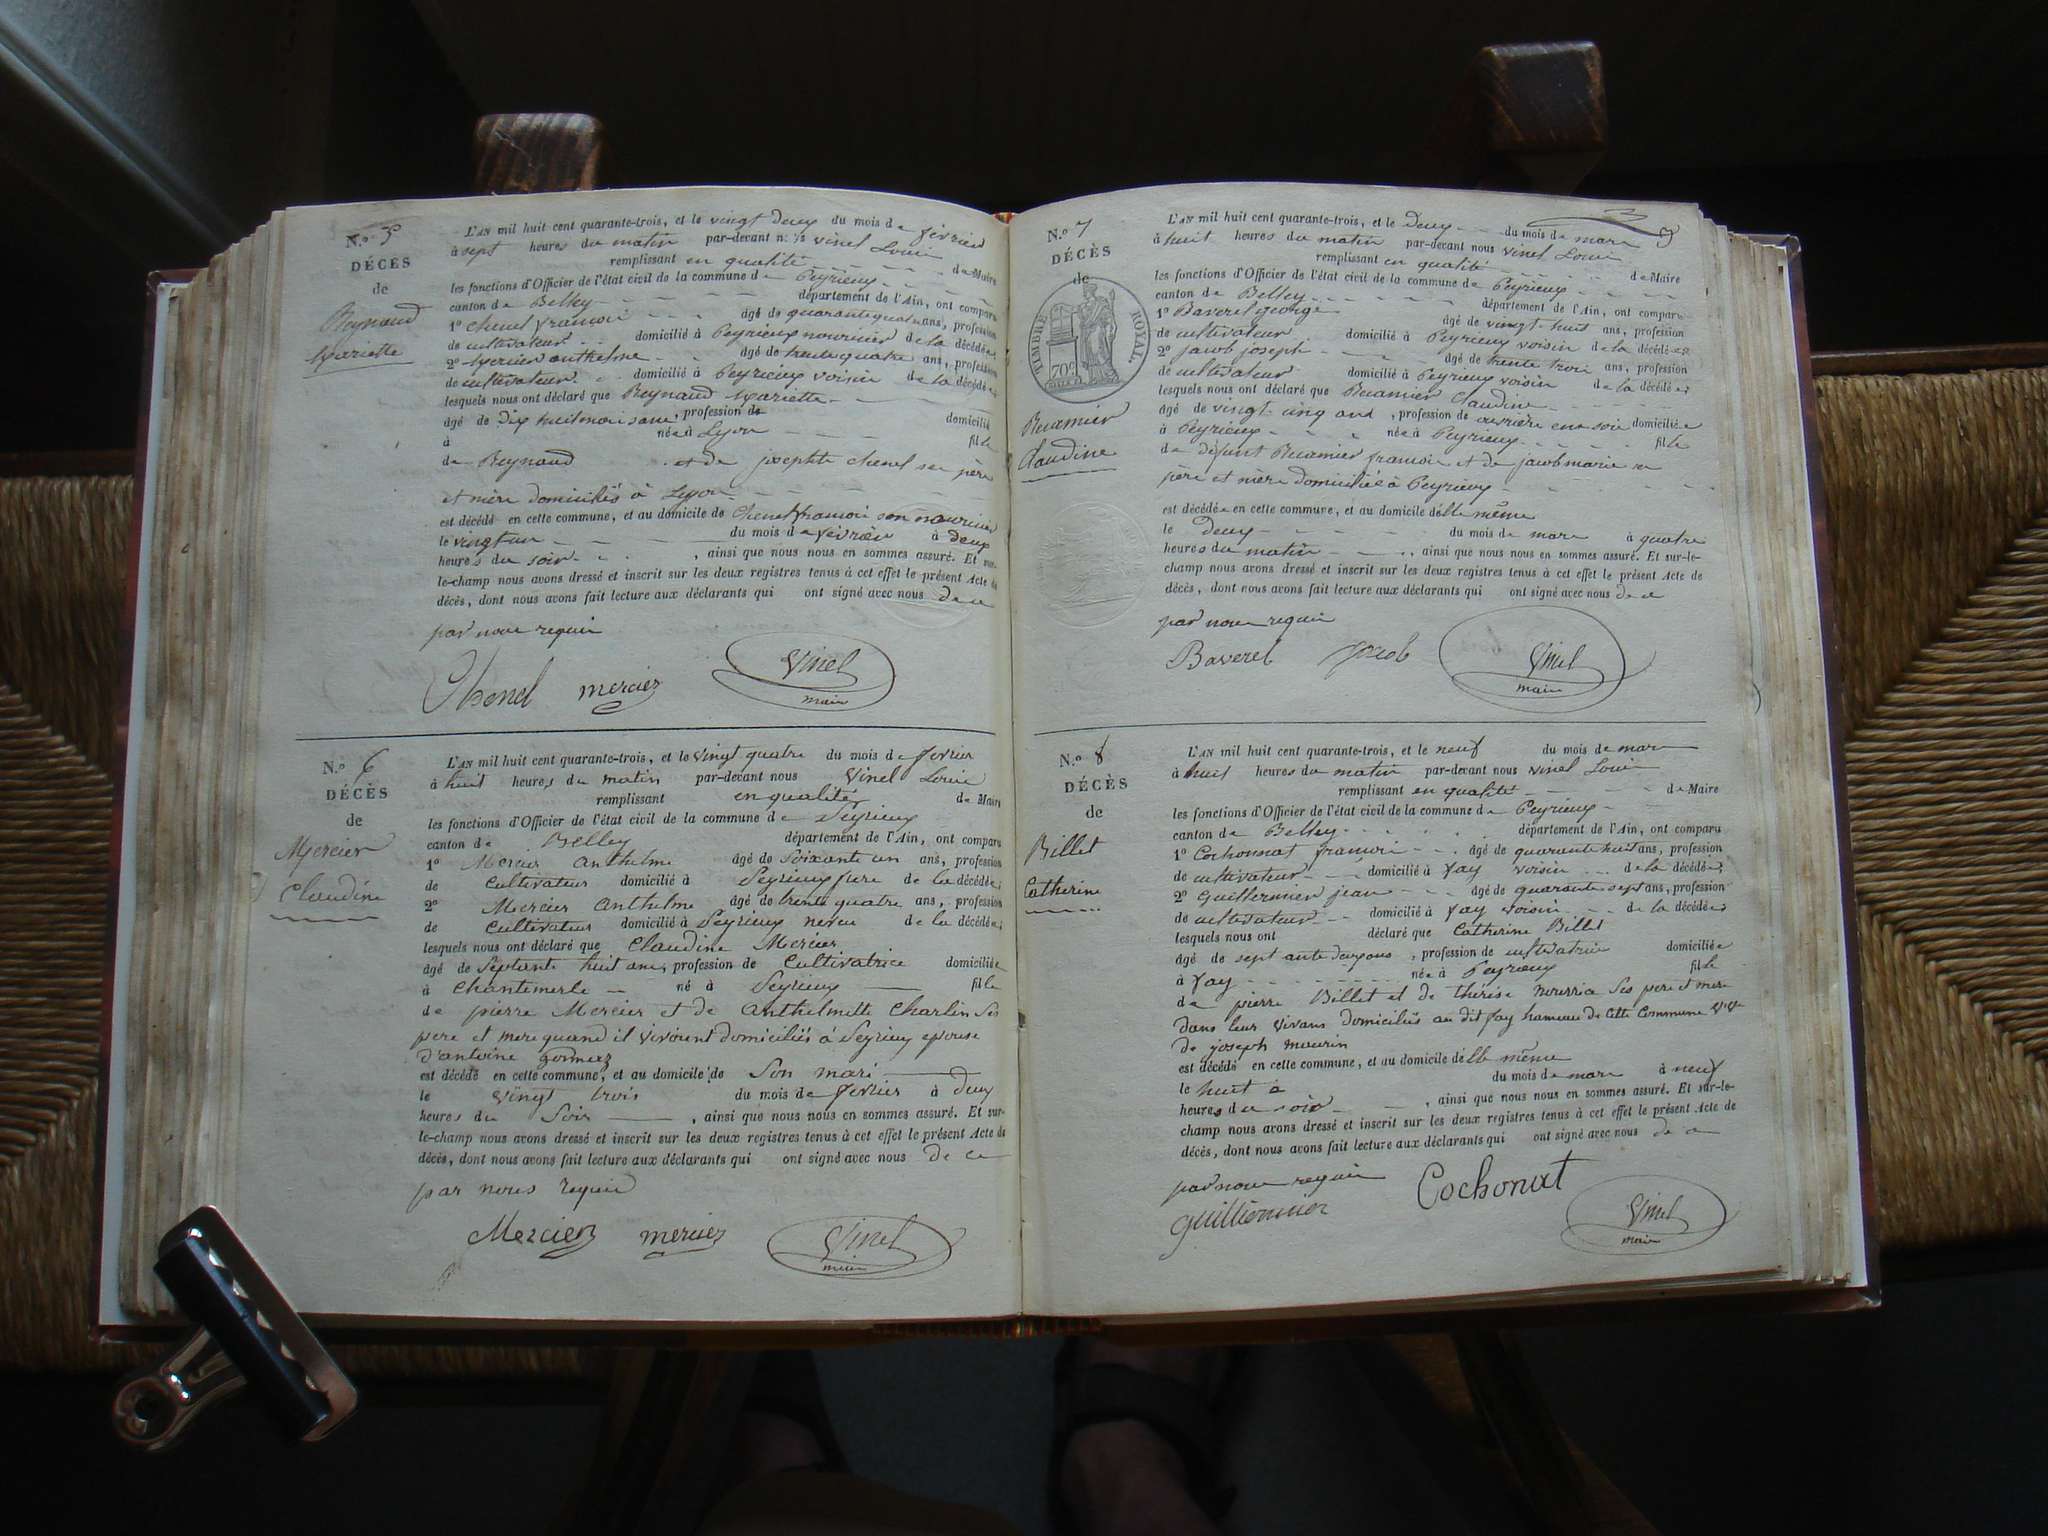 N.º 5
DÉCÈS
de
Reynaud
Mariette
L'AN mil huit cent quarante-trois, et le vingt deux du mois de février
à sept heures du matin par-devant nous Vinel Louis
remplissant en qualité de Maire
les fonctions d'Officier de l'état civil de la commune de Peyrieux
canton de Belley département de l'Ain, ont comparu
1º Chenel francois âgé de quarante quatre ans, profession
de cultivateur domicilié à Peyrieux nourricier de la décédée;
2º Mercier anthelme âgé de trente quatre ans, profession
de cultivateur domicilié à Peyrieux voisin de la décédée;
lesquels nous ont déclaré que Reynaud Mariette
âgé de dix huit mois sans, profession de domicilié
à née à Lyon fille
de Reynaud et de josephte chenel ses père
et mère domiciliés à Lyon
est décédé en cette commune, et au domicile de Chenel francois son nourricier
le vingt un du mois de février à deux
heures du soir, ainsi que nous nous en sommes assuré. Et sur-
le-champ nous avons dressé et inscrit sur les deux registres tenus à cet effet le présent Acte de
décès, dont nous avons fait lecture aux déclarants qui ont signé avec nous de ce
par nous requis
Chenel mercier Vinel
maire
N.º 6
DÉCÈS
de
Mercier
Claudine
L'AN mil huit cent quarante-trois, et le vingt quatre du mois de fevrier
à huit heures du matin par-devant nous Vinel Louis
remplissant en qualité de Maire
les fonctions d'Officier de l'état civil de la commune de Peyrieux
canton de Belley département de l'Ain, ont comparu
1º Mercier Anthelme âgé de Soixante un ans, profession
de Cultivateur domicilié à Peyrieux frere de la décédée;
2º Mercier Anthelme âgé de trente quatre ans, profession
de Cultivateur domicilié à Peyrieux neveu de la décédée;
lesquels nous ont déclaré que Claudine Mercier
âgé de Septante huit ans, profession de Cultivatrice domiciliée
à Chantemerle né à Peyrieux fille
de pierre Mercier et de Anthelmette Charlin Ses
pere et mere quand il vivoient domiciliés à Peyrieux epouse
d'antoine
est décédé en cette commune, et au domicile de Son mari
le vingt trois du mois de fevrier à deux
heures du Soir, ainsi que nous nous en sommes assuré. Et sur-
le-champ nous avons dressé et inscrit sur les deux registres tenus à cet effet le présent Acte de
décès, dont nous avons fait lecture aux déclarants qui ont signé avec nous de ce
par nous requis
Mercier mercier Vinel
maire
N.º 7
DÉCÈS
de
TIMBRE ROYAL
70c
Recamier
Claudine
L'AN mil huit cent quarante-trois, et le deux du mois de mars
à huit heures du matin par-devant nous Vinel Louis
remplissant en qualité de Maire
les fonctions d'Officier de l'état civil de la commune de Peyrieux
canton de Belley département de l'Ain, ont comparu
1º Baverel george âgé de vingt huit ans, profession
de cultivateur domicilié à Peyrieux voisin de la décédée;
2º jacob joseph âgé de trente trois ans, profession
de cultivateur domicilié à Peyrieux voisin de la décédée;
lesquels nous ont déclaré que Recamier Claudine
âgé de vingt cinq ans, profession de ouvrière en soie domiciliée
à Peyrieux née à Peyrieux fille
de défunt Recamier francois et de jacob marie ses
père et mère domiciliés à Peyrieux
est décédée en cette commune, et au domicile d'elle même
le deux du mois de mars à quatre
heures du matin, ainsi que nous nous en sommes assuré. Et sur-le-
champ nous avons dressé et inscrit sur les deux registres tenus à cet effet le présent Acte de
décès, dont nous avons fait lecture aux déclarants qui ont signé avec nous de ce
par nous requis
Baverel Jacob Vinel
maire
N.º 8
DÉCÈS
de
Billet
Catherine
L'AN mil huit cent quarante-trois, et le neuf du mois de mars
à huit heures du matin par-devant nous Vinel Louis
remplissant en qualité de Maire
les fonctions d'Officier de l'état civil de la commune de Peyrieux
canton de Belley département de l'Ain, ont comparu
1º Cochonnat francois âgé de quarante huit ans, profession
de cultivateur domicilié à fay voisin de la décédée;
2º Guillermier jean âgé de quarante sept ans, profession
de cultivateur domicilié à fay voisin de la décédée;
lesquels nous ont déclaré que Catherine Billet
âgé de sept ante deux ans, profession de cultivatrice domiciliée
à fay née à Peyrieux fille
de pierre Billet et de thérèse Ses pere et mere
dans leur vivans domiciliés au dit fay hameau de Cette Commune Vve
de joseph
est décédé en cette commune, et au domicile d'elle même
le huit à du mois de mars à neuf
heures du soir, ainsi que nous nous en sommes assuré. Et sur-le-
champ nous avons dressé et inscrit sur les deux registres tenus à cet effet le présent Acte de
décès, dont nous avons fait lecture aux déclarants qui ont signé avec nous de ce
par nous requis Cochonat
guillierminer Vinel
maire